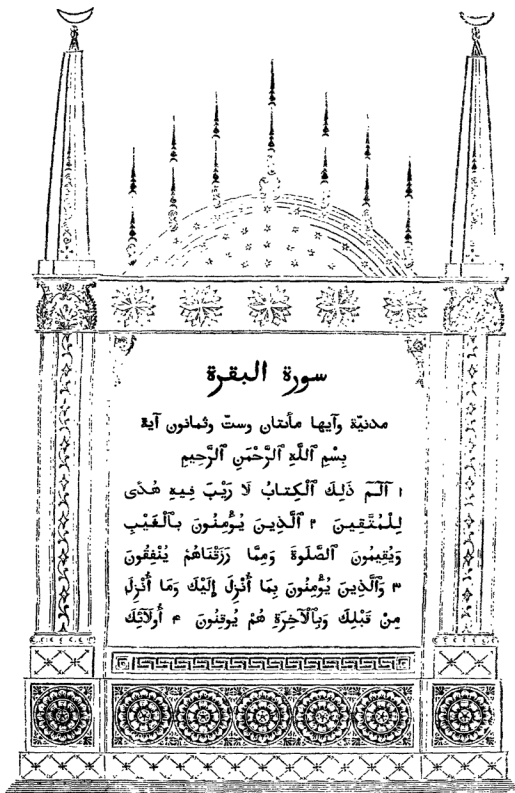 سورة البقرة
مدنيّة وآيها مائتان وستّ وثمانون آية
بِسْمِ ٱللَّهِ ٱلرَّحْمَنِ ٱلرَّحِيمِ
١ الٓمٓ ذَلِكَ ٱلْكِتابُ لَا رَيْبَ فِيهِ هُدًى
لِلْمُتَّقِينَ ٢ ٱلَّذِينَ يُؤْمِنُونَ بِٱلْغَيْبِ
وَيُقِيمُونَ ٱلصَّلَوةَ وَمِمَّا رَزَقْنَاهُمْ يُنْفِقُونَ
٣ وَٱلَّذِينَ يُؤْمِنُونَ بِمَا أُنْزِلَ إِلَيْكَ وَمَا أُنْزِلَ
مِنْ قَبْلِكَ وَبِٱلْآخِرَةِ هُمْ يُوقِنُونَ ۴ أُولَآئِكَ